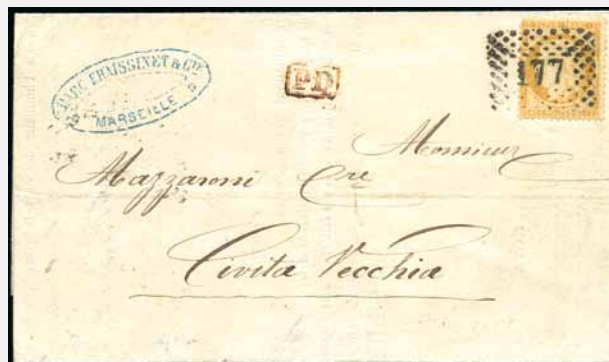 MARC FRAISSINET & Cie
MARSEILLE
PD
177
Monsieur
Mazzaroni Cre
Civita Vecchia